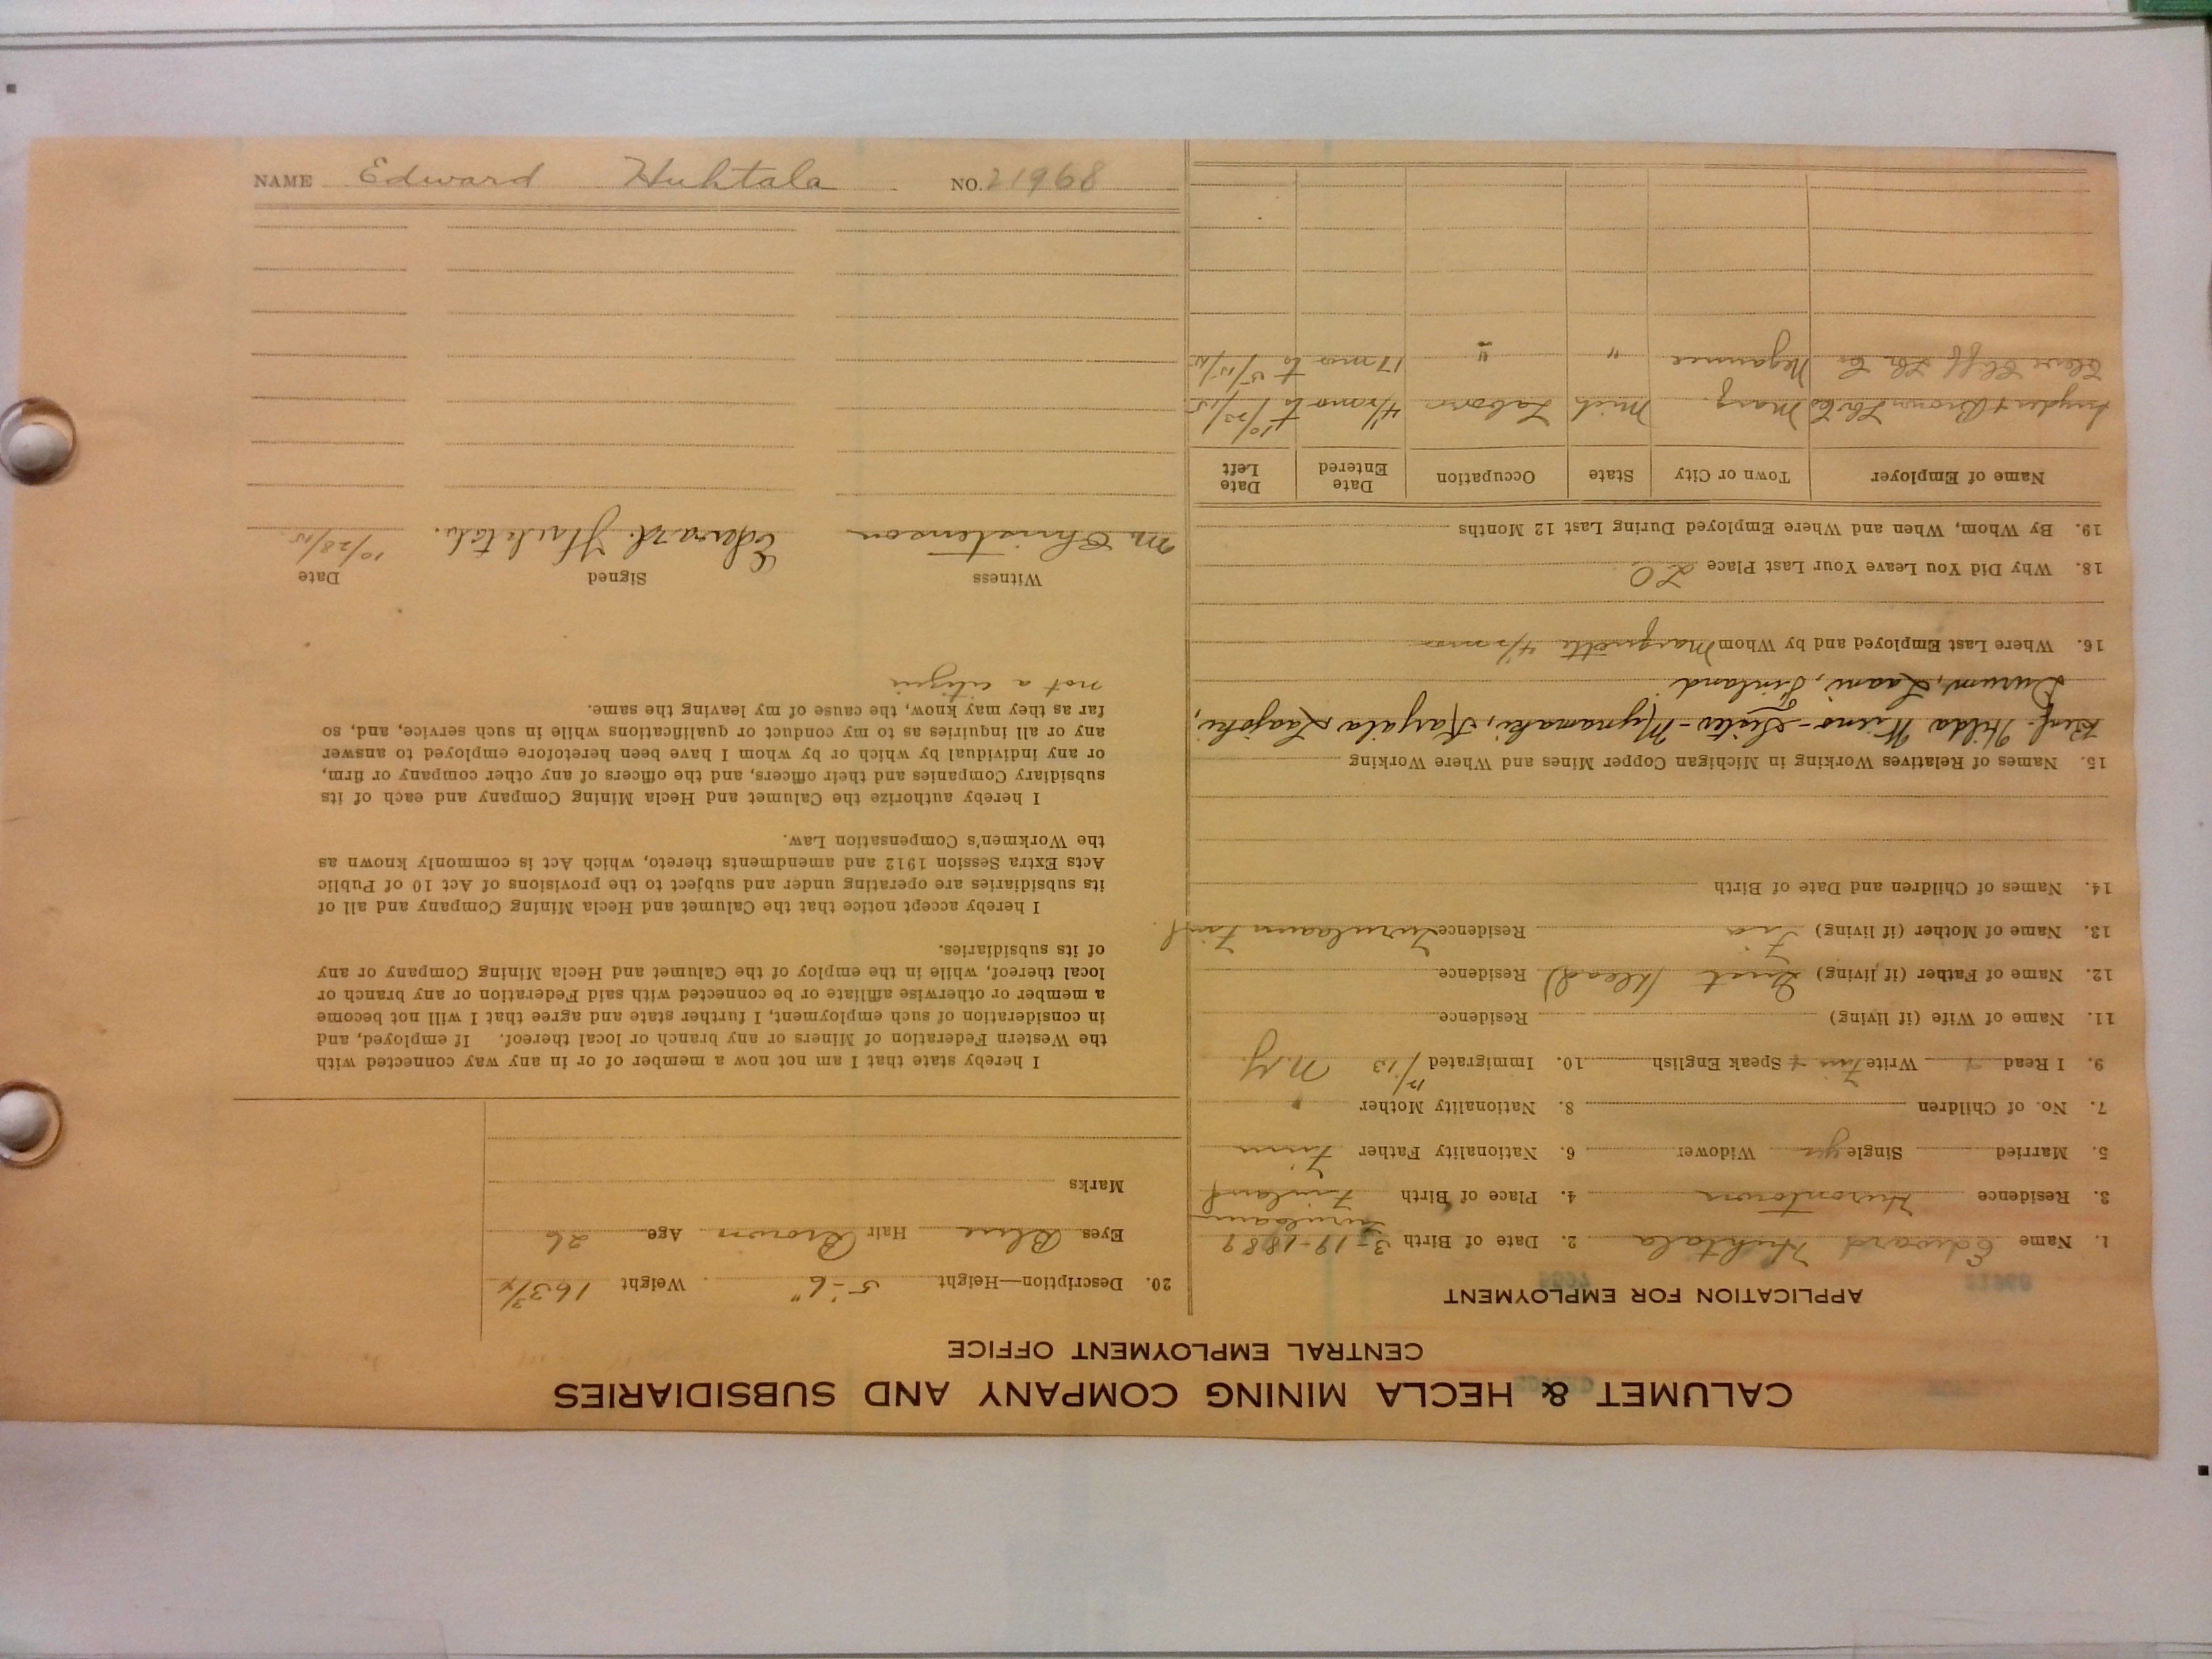 CALUMET & HECLA MINING COMPANY AND SUBSIDIARIES
CENTRAL EMPLOYMENT OFFICE
APPLICATION FOR EMPLOYMENT
1. Name Edward Huhtala 2. Date of Birth 3-19-1889
3. Residence Hurontown 4. Place of Birth Finland
5. Married Single yes Widower 6. Nationality Father Finn
7. No. of Children 8. Nationality Mother "
9. I Read Write Finn Speak English 10. Immigrated 12/13 N.Y.
11. Name of Wife (if living) Residence
12. Name of Father (if living) Gust (dead) Residence
13. Name of Mother (if living) Residence
14. Names of Children and Date of Birth
15. Names of Relatives Working in Michigan Copper Mines and Where Working
Hilda - Sister - Mynamaki, Karjala
Finland
16. Where Last Employed and by Whom Marquette
18. Why Did You Leave Your Last Place LO
19. By Whom, When and Where Employed During Last 12 Months
Name of Employer Town or City State Occupation Date Entered Date Left
Brown Marq. Mich Labor to 10/23/15
Cleve Cliff Negaunee " " 17 mos to
20. Description—Height 5-6" Weight 163 3/4
Eyes Blue Hair Brown Age 26
Marks
I hereby state that I am not now a member of or in any way connected with
the Western Federation of Miners or any branch or local thereof. If employed, and
in consideration of such employment, I further state and agree that I will not become
a member or otherwise affiliate or be connected with said Federation or any branch or
local thereof, while in the employ of the Calumet and Hecla Mining Company or any
of its subsidiaries.
I hereby accept notice that the Calumet and Hecla Mining Company and all of
its subsidiaries are operating under and subject to the provisions of Act 10 of Public
Acts Extra Session 1912 and amendments thereto, which Act is commonly known as
the Workmen's Compensation Law.
I hereby authorize the Calumet and Hecla Mining Company and each of its
subsidiary Companies and their officers, and the officers of any other company or firm,
or any individual by which or by whom I have been heretofore employed to answer
any or all inquiries as to my conduct or qualifications while in such service, and, so
far as they may know, the cause of my leaving the same.
not a citizen
Witness Signed Date
M Christenson Edward Huhtala. 10/28/15
NAME Edward Huhtala NO. 21968